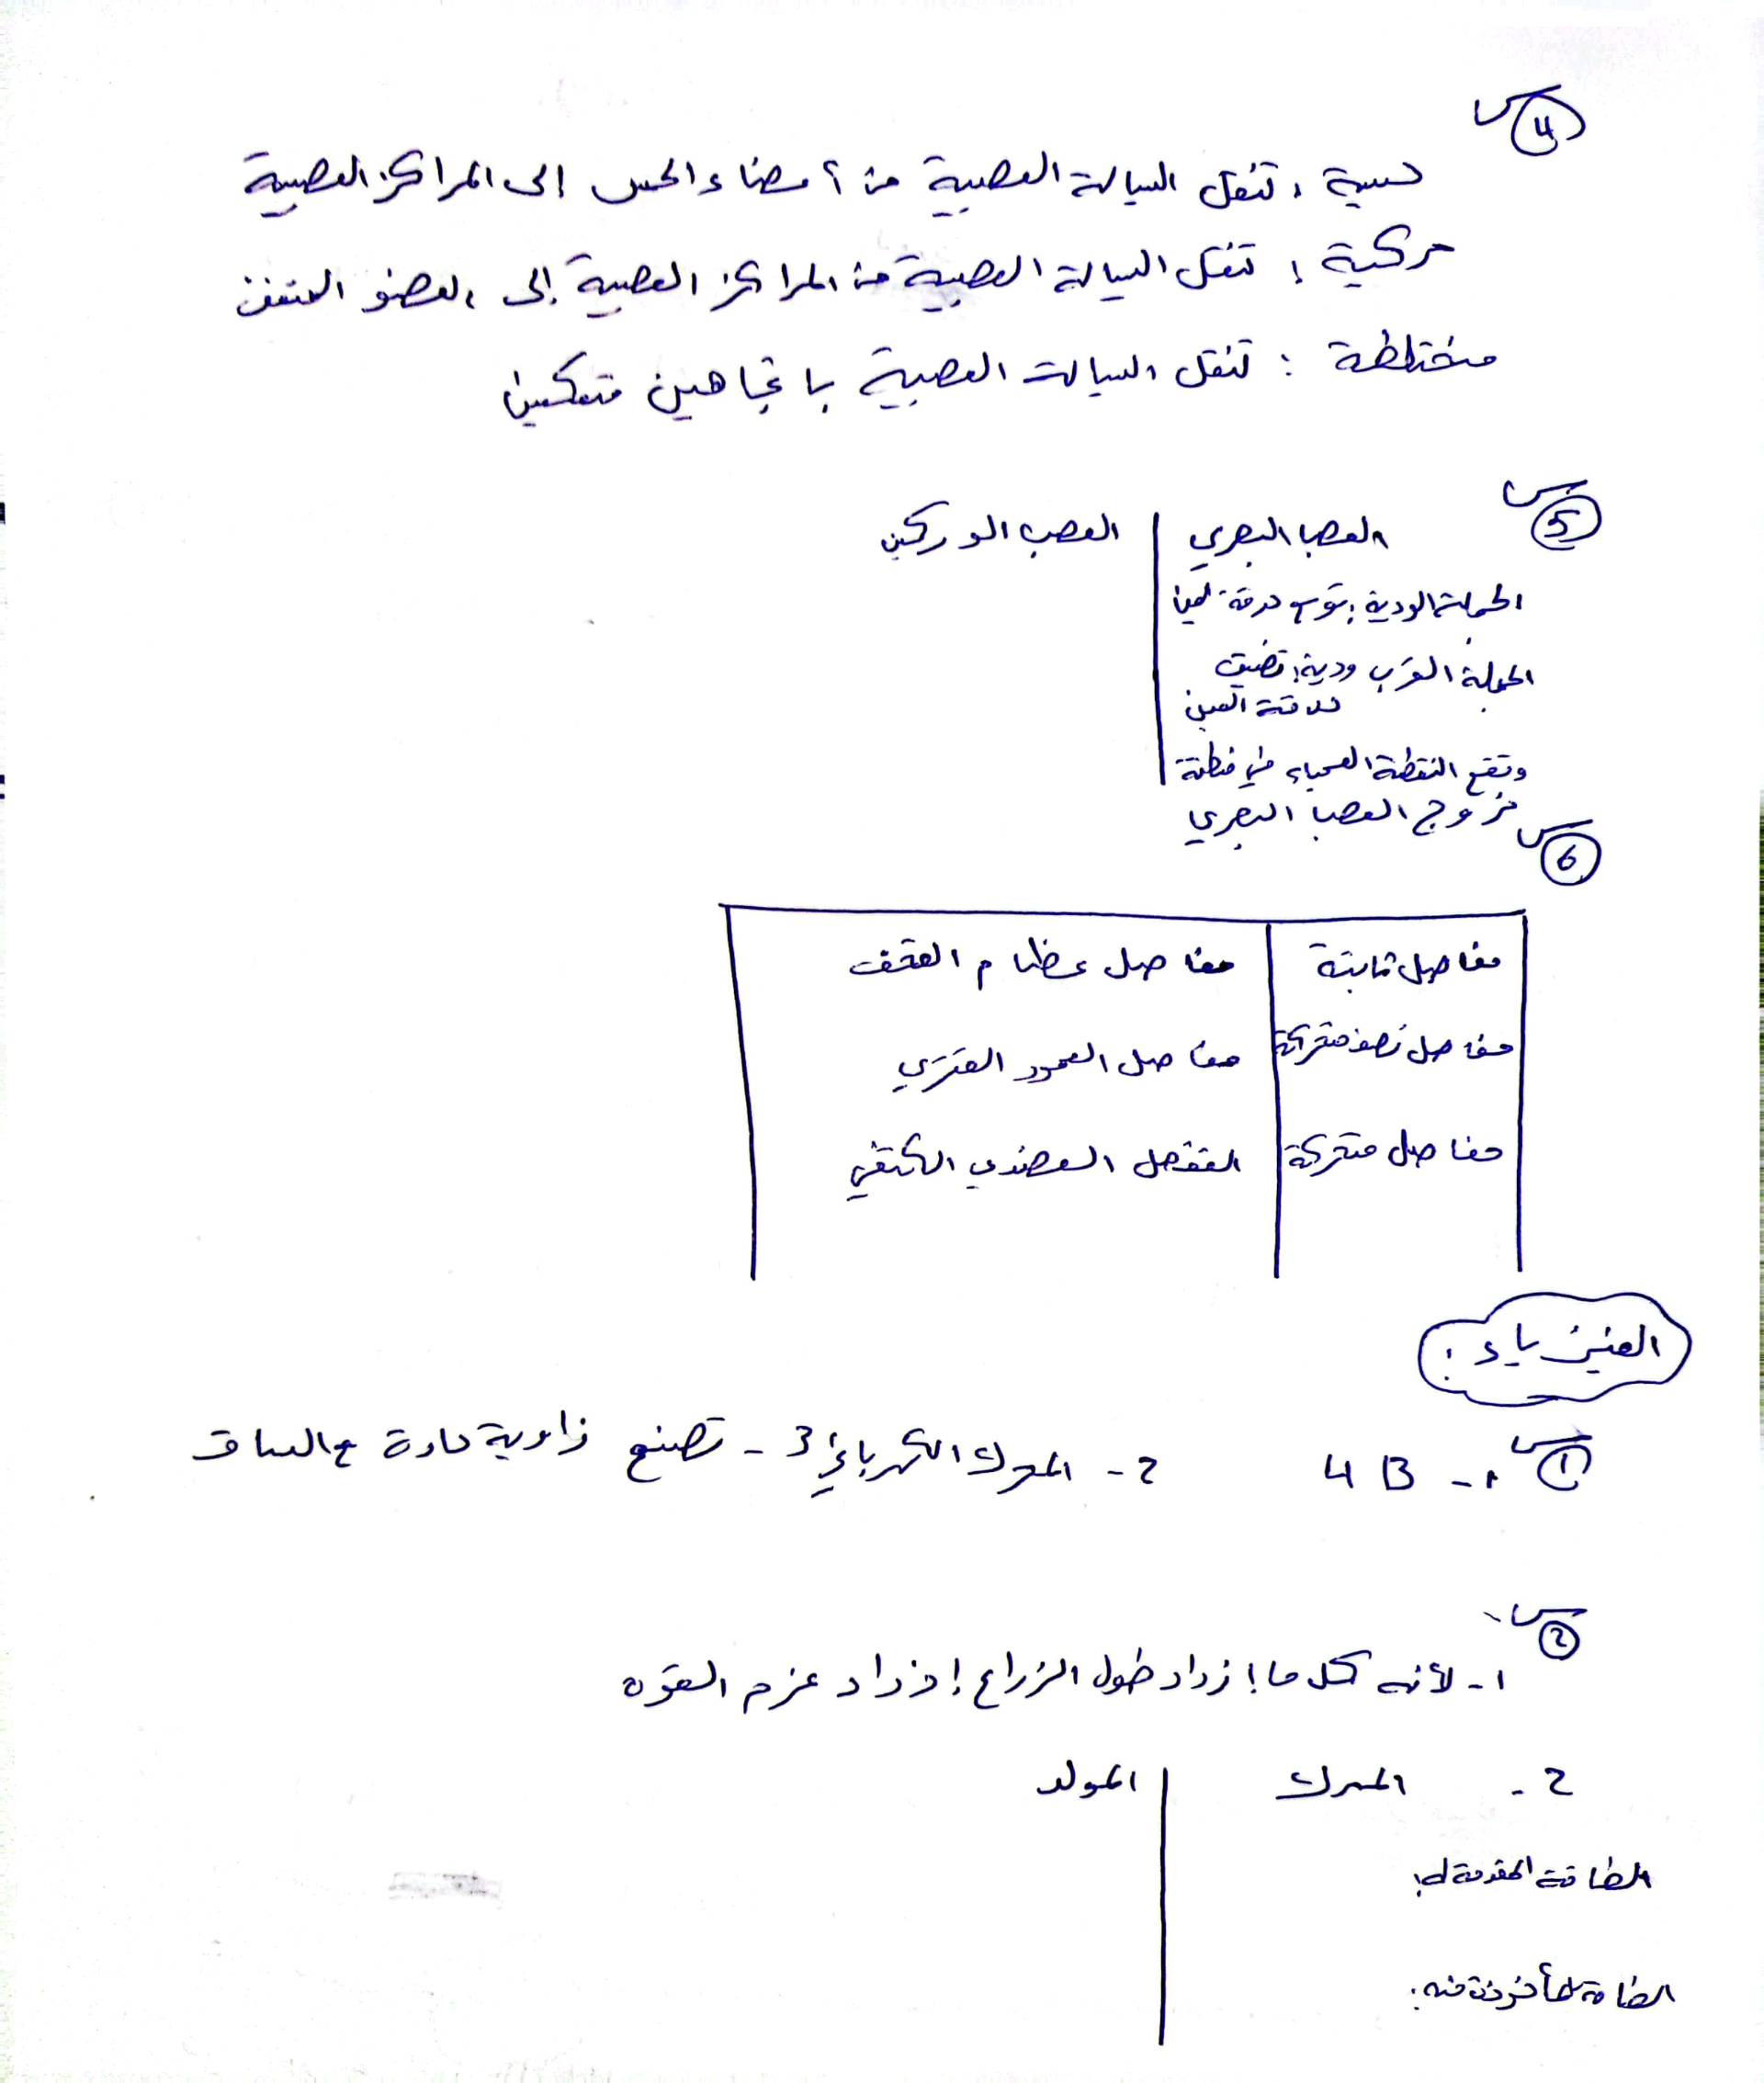 س4
حسية : تنقل السيالة العصبية من أعضاء الحس إلى المراكز العصبية
حركية : تنقل السيالة العصبية من المراكز العصبية إلى العضو المنفذ
مختلطة : تنقل السيالة العصبية باتجاهين متعكسين
س5
العصب البصري | العصب الوركي
الجملة الودية : توسع حدقة العين
الجملة القرب ودية : تضيق
حدقة العين
وتقع النقطة العمياء في منطقة
خروج العصب البصري
س6
مفاصل ثابتة | مفاصل عظام القحف
مفاصل نصف متحركة | مفاصل العمود الفقري
مفاصل متحركة | المفصل العضدي الكتفي
الفيزياء :
س1 1- 4 B 2- المحرك الكهربائي 3- تصنع زاوية حادة مع الساق
س2
1- لأنه كل ما إزداد طول الزراع إزداد عزم القوة
2- المحرك | المولد
الطاقة المقدمة له :
الطاقة المأخوذة منه :